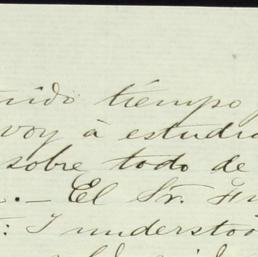 tenido tiempo
voy á estudia
sobre todo de
.— El Sr. Fr
: I understoo